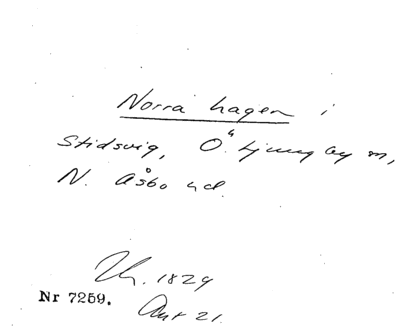 Norra hagen i
Stidsvig, Ö. Ljungby sn,
N. Åsbo hd.
1829
Nr 7259.
21